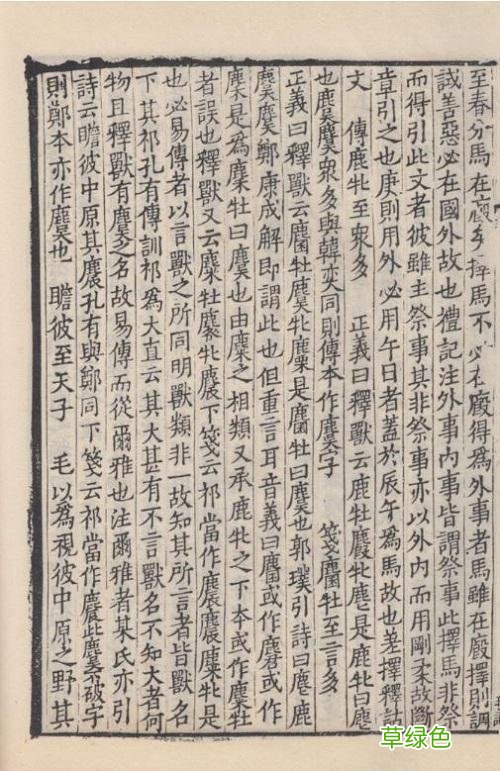 至春分馬在廄擇馬不必在廄得為外事者馬雖在廄擇則調
誡善惡必在國外故也禮記注外事內事皆謂祭事此擇馬非祭
而得引此文者彼雖主祭事其非祭事亦以外內而用剛柔故斷
章引之也庚則用外必用午日者蓋於辰午爲馬故也差擇釋詁
文 傳鹿牝至眾多 正義曰釋獸云鹿牡麚牝麀是鹿牝曰麀
也麌麌眾多與韓奕同則傳本作麌字 箋麕牡至言多
正義曰釋獸云麕牡麌牝麜是麕牡曰麌也郭璞引詩曰麀鹿
麌麌鄭康成解即謂此也但重言耳音義曰麕或作麏或作
麇是爲麇牡曰麌也由麇之相類又承鹿牝之下本或作麇牡
者誤也釋獸又云麋牡麔牝麎下箋云祁當作麎麎麋牝是
也必易傳者以言獸之所同明獸類非一故知其所言者皆獸名
下其祁孔有傳訓祁爲大直云其大甚有不言獸名不知大者何
物且釋獸有麎之名故易傳而從爾雅也注爾雅者某氏亦引
詩云瞻彼中原其麎孔有與鄭同下箋云祁當作麎此麌不破字
則鄭本亦作麌也 瞻彼至天子 毛以爲視彼中原之野其
草绿色